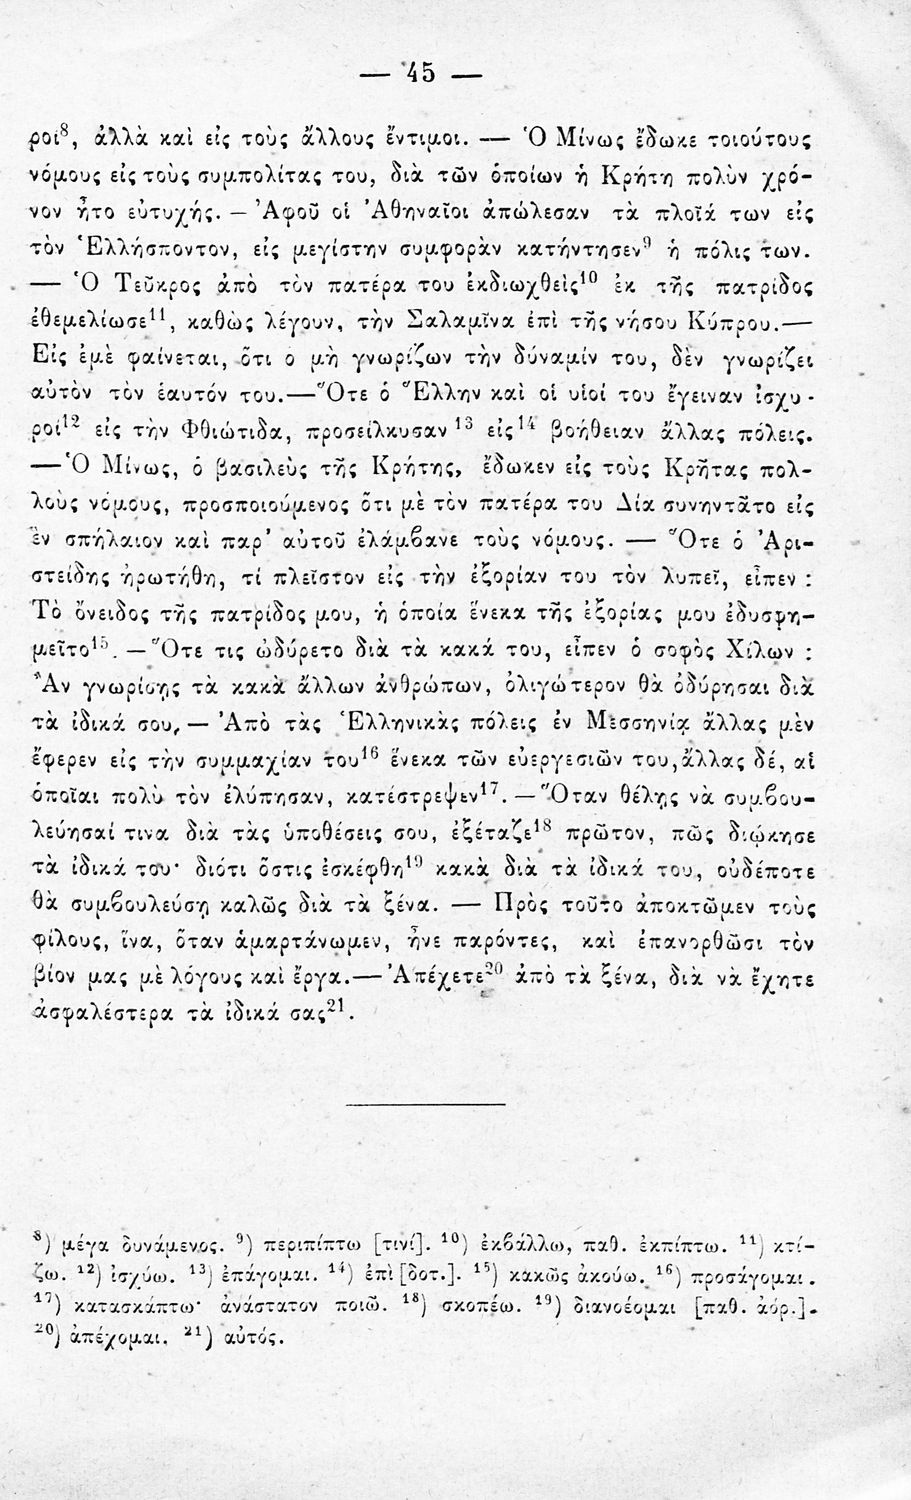 — 45 —
ροι⁸, ἀλλὰ καὶ εἰς τοὺς ἄλλους ἔντιμοι. — Ὁ Μίνως ἔδωκε τοιούτους
νόμους εἰς τοὺς συμπολίτας του, διὰ τῶν ὁποίων ἡ Κρήτη πολὺν χρό-
νον ἦτο εὐτυχής. — Ἀφοῦ οἱ Ἀθηναῖοι ἀπώλεσαν τὰ πλοῖά των εἰς
τὸν Ἑλλήσποντον, εἰς μεγίστην συμφορὰν κατήντησεν⁹ ἡ πόλις των.
— Ὁ Τεῦκρος ἀπὸ τὸν πατέρα του ἐκδιωχθεὶς¹⁰ ἐκ τῆς πατρίδος
ἐθεμελίωσε¹¹, καθὼς λέγουν, τὴν Σαλαμῖνα ἐπὶ τῆς νήσου Κύπρου.—
Εἰς ἐμὲ φαίνεται, ὅτι ὁ μὴ γνωρίζων τὴν δύναμίν του, δὲν γνωρίζει
αὐτὸν τὸν ἑαυτόν του.—Ὅτε ὁ Ἕλλην καὶ οἱ υἱοί του ἔγειναν ἰσχυ-
ροί¹² εἰς τὴν Φθιώτιδα, προσείλκυσαν¹³ εἰς¹⁴ βοήθειαν ἄλλας πόλεις.
—Ὁ Μίνως, ὁ βασιλεὺς τῆς Κρήτης, ἔδωκεν εἰς τοὺς Κρῆτας πολ-
λοὺς νόμους, προσποιούμενος ὅτι μὲ τὸν πατέρα του Δία συνηντᾶτο εἰς
ἓν σπήλαιον καὶ παρ' αὐτοῦ ἐλάμβανε τοὺς νόμους. — Ὅτε ὁ Ἀρι-
στείδης ἠρωτήθη, τί πλεῖστον εἰς τὴν ἐξορίαν του τὸν λυπεῖ, εἶπεν :
Τὸ ὄνειδος τῆς πατρίδος μου, ἡ ὁποία ἕνεκα τῆς ἐξορίας μου ἐδυσφη-
μεῖτο¹⁵. —Ὅτε τις ὠδύρετο διὰ τὰ κακά του, εἶπεν ὁ σοφὸς Χίλων :
Ἂν γνωρίσῃς τὰ κακὰ ἄλλων ἀνθρώπων, ὀλιγώτερον θὰ ὀδύρησαι διὰ
τὰ ἰδικά σου, — Ἀπὸ τὰς Ἑλληνικὰς πόλεις ἐν Μεσσηνίᾳ ἄλλας μὲν
ἔφερεν εἰς τὴν συμμαχίαν του¹⁶ ἕνεκα τῶν εὐεργεσιῶν του, ἄλλας δέ, αἱ
ὁποῖαι πολὺ τὸν ἐλύπησαν, κατέστρεψεν¹⁷. — Ὅταν θέλῃς νὰ συμβου-
λεύησαί τινα διὰ τὰς ὑποθέσεις σου, ἐξέταζε¹⁸ πρῶτον, πῶς διῴκησε
τὰ ἰδικά του· διότι ὅστις ἐσκέφθη¹⁹ κακὰ διὰ τὰ ἰδικά του, οὐδέποτε
θὰ συμβουλεύσῃ καλῶς διὰ τὰ ξένα. — Πρὸς τοῦτο ἀποκτῶμεν τοὺς
φίλους, ἵνα, ὅταν ἁμαρτάνωμεν, ἦνε παρόντες, καὶ ἐπανορθῶσι τὸν
βίον μας μὲ λόγους καὶ ἔργα.— Ἀπέχετε²⁰ ἀπὸ τὰ ξένα, διὰ νὰ ἔχητε
ἀσφαλέστερα τὰ ἰδικά σας²¹.
⁸) μέγα δυνάμενος. ⁹) περιπίπτω [τινί]. ¹⁰) ἐκβάλλω, παθ. ἐκπίπτω. ¹¹) κτί-
ζω. ¹²) ἰσχύω. ¹³) ἐπάγομαι. ¹⁴) ἐπὶ [δοτ.]. ¹⁵) κακῶς ἀκούω. ¹⁶) προσάγομαι.
¹⁷) κατασκάπτω· ἀνάστατον ποιῶ. ¹⁸) σκοπέω. ¹⁹) διανοέομαι [παθ. ἀόρ.].
²⁰) ἀπέχομαι. ²¹) αὐτός.